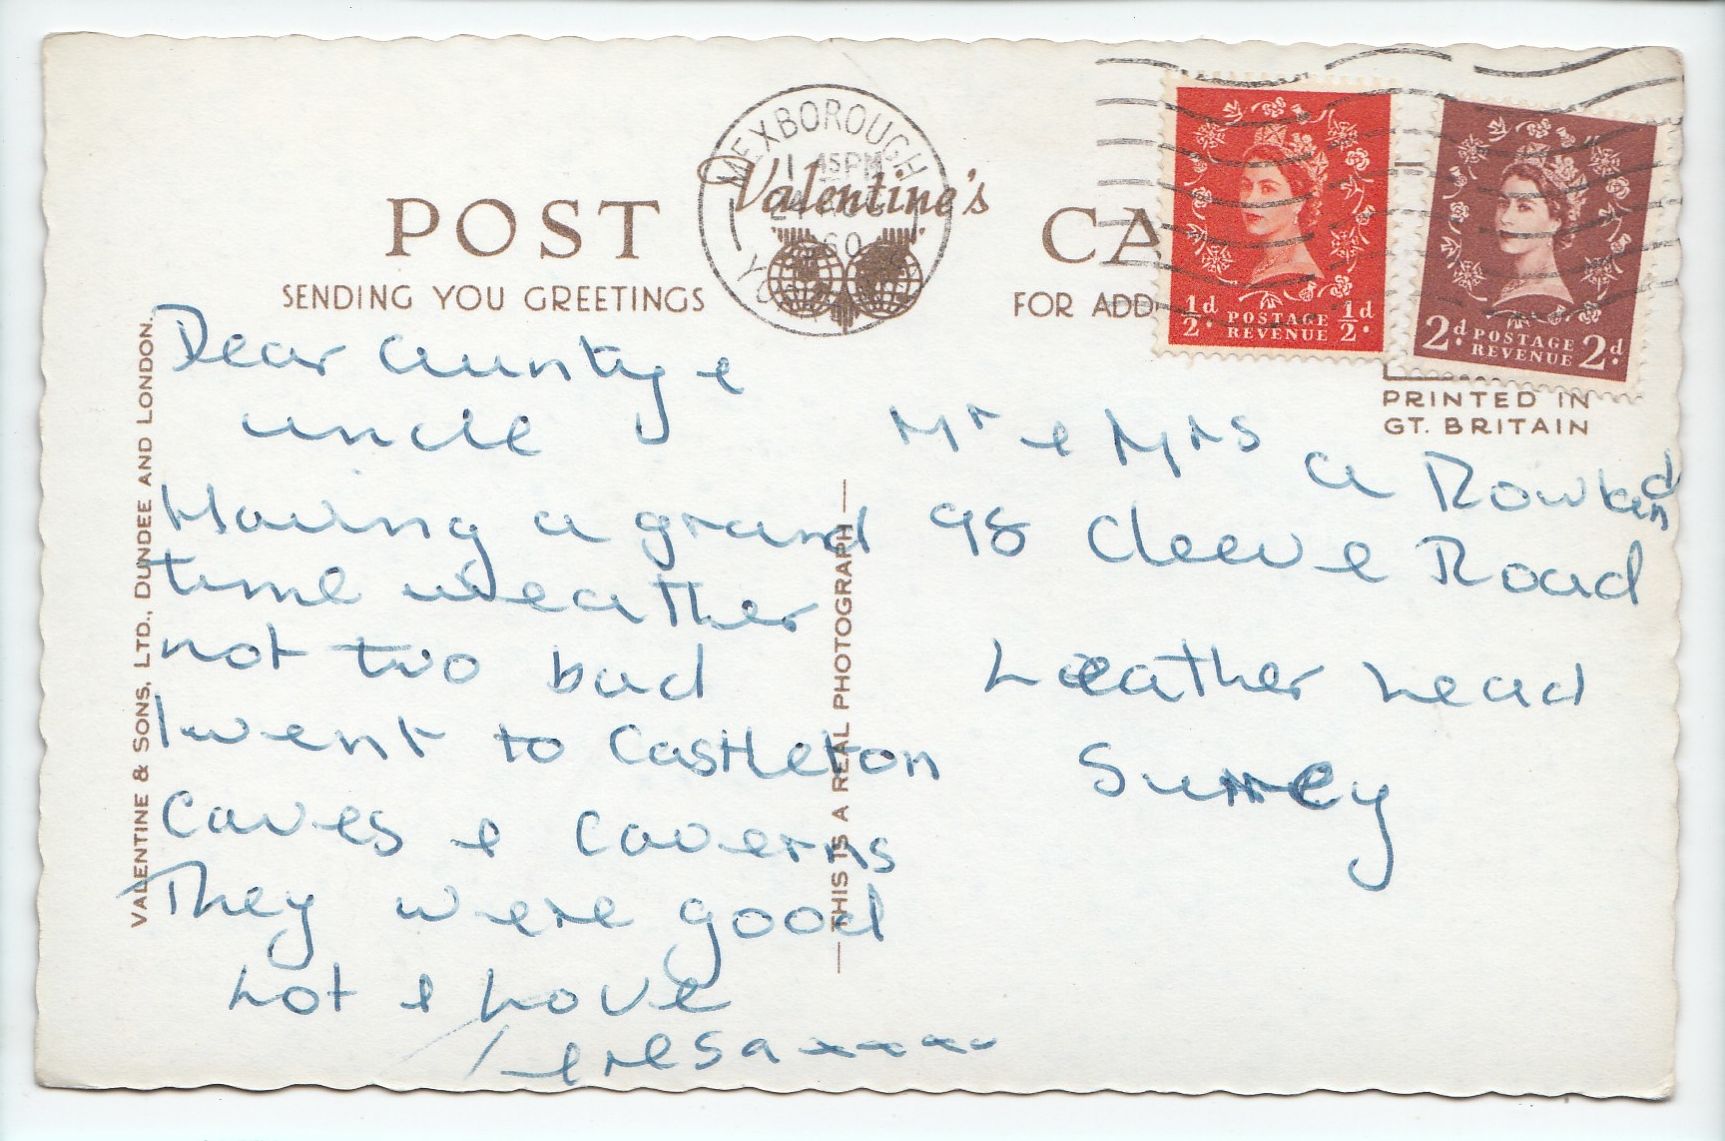 POST
Valentine's
CA
SENDING YOU GREETINGS
FOR ADD
MEXBOROUGH
1 45 PM
60
½d. POSTAGE REVENUE ½d.
2d. POSTAGE REVENUE 2d.
PRINTED IN
GT. BRITAIN
VALENTINE & SONS, LTD., DUNDEE AND LONDON.
THIS IS A REAL PHOTOGRAPH
Dear Aunty &
uncle
Having a grand
time weather
not two bad
I went to Castleton
Caves & Caverns
They were good
Lot & Love
Teresa xxxx
Mr & Mrs A Rowland
98 Cleeve Road
Leather head
Surrey